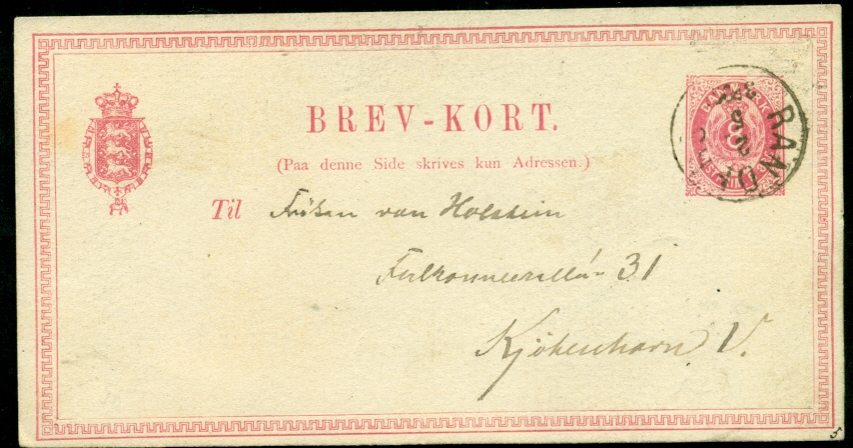 BREV-KORT.
(Paa denne Side skrives kun Adressen.)
RANDERS
Til Frøken von Holstein
31
Kjöbenhavn V.